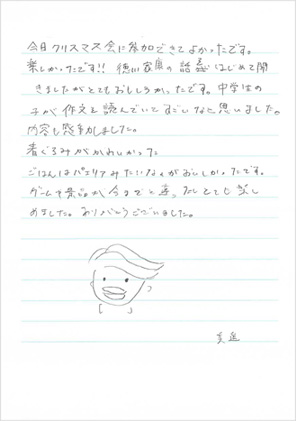 今日クリスマス会に参加できてよかったです。
楽しかったです!! 徳川家康の話はじめて聞
きましたがとてもおもしろかったです。中学生の
子が作文を読んでいてすごいなと思いました。
内容も感動しました。
着ぐるみがかわいかった
ごはんはパエリアみたいなのがおいしかったです。
ゲームや景品が今までと違ったしとても楽し
めました。ありがとうございました。